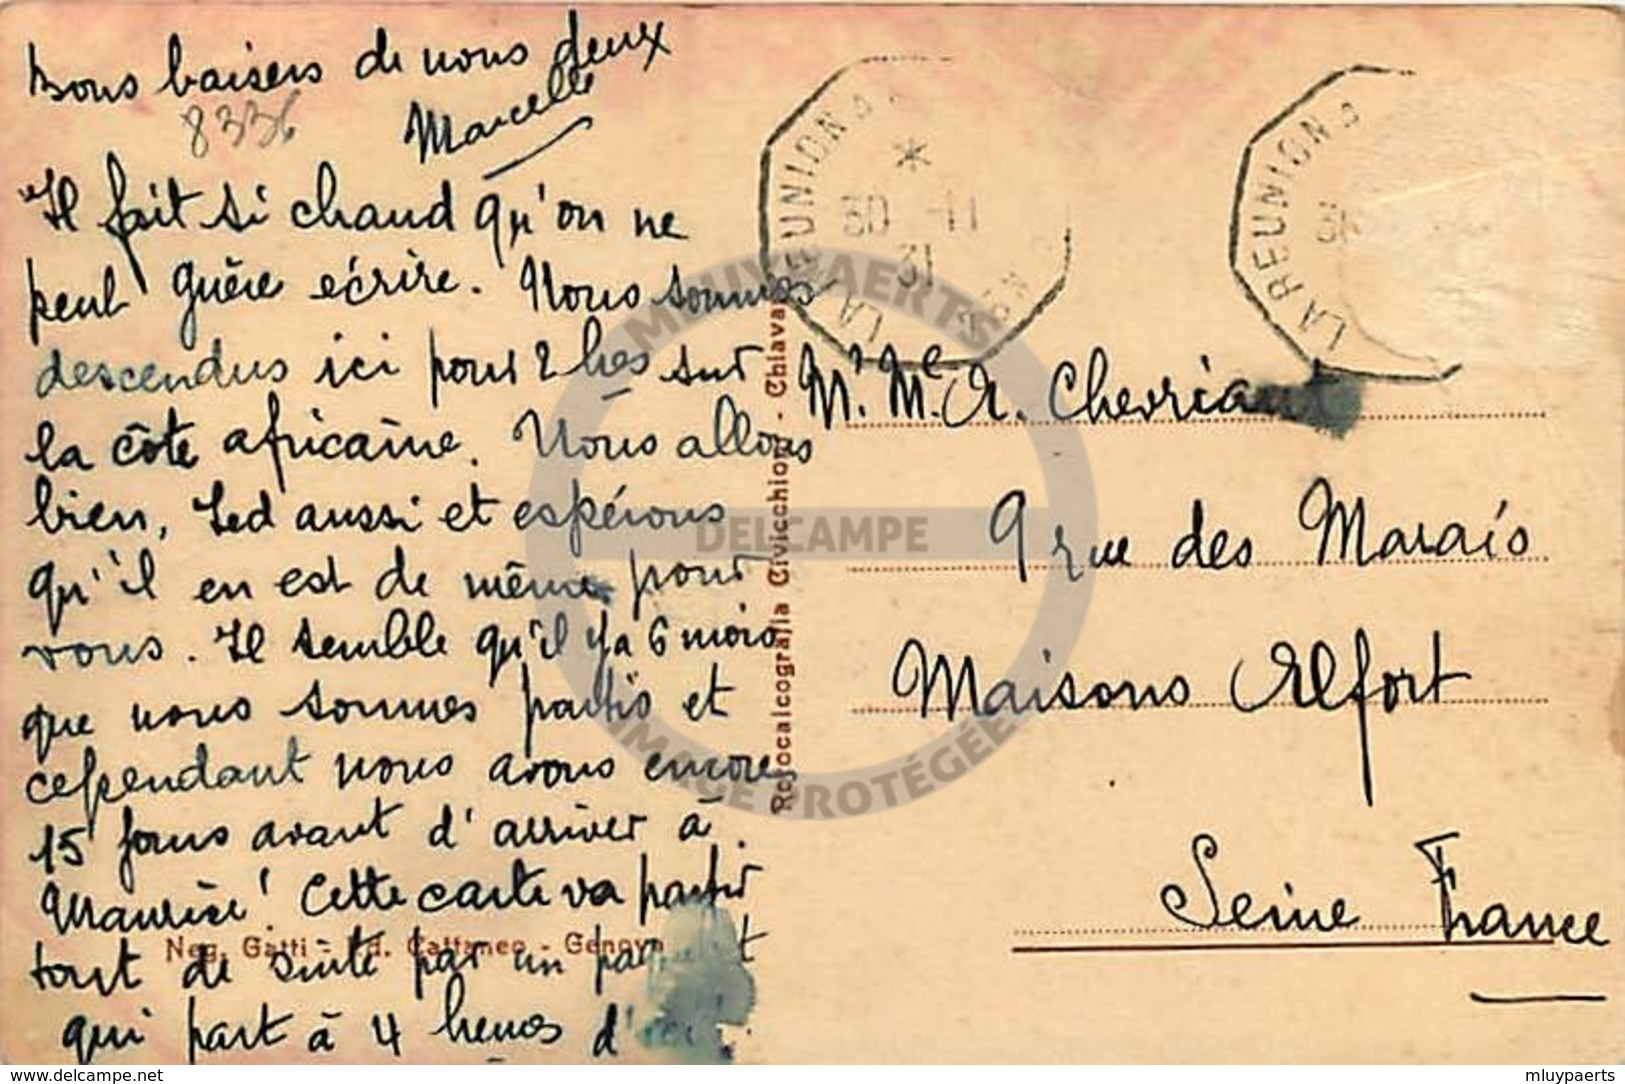 Bons baisers de nous deux
Marcelle
8336
Il fait si chaud qu'on ne
peut guère écrire. Nous sommes
descendus ici pour 2 hes sur
la côte africaine. Nous allons
bien, Ted aussi et espérons
qu'il en est de même pour
vous. Il semble qu'il y a 6 mois
que nous sommes partis et
cependant nous avons encore
15 jours avant d'arriver à
Maurice! Cette carte va partir
tout de suite par un paquebot
qui part à 4 heures d'ici.
Neg. Gatti - Ed. Cattaneo - Genova
Rotocalcografia Civicchioni - Chiavari
LA REUNION A
*
30 -11
31
LA REUNION A
30
Mr. Me. A. Chevriaut
9 rue des Marais
Maisons Alfort
Seine France
MLUYPAERTS
DELCAMPE
IMAGE PROTÉGÉE
delcampe.net
mluypaerts